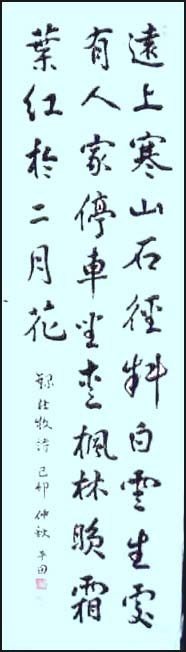 遠上寒山石徑斜白雲生處
有人家停車坐愛楓林晚霜
葉紅於二月花
錄杜牧詩己卯仲秋